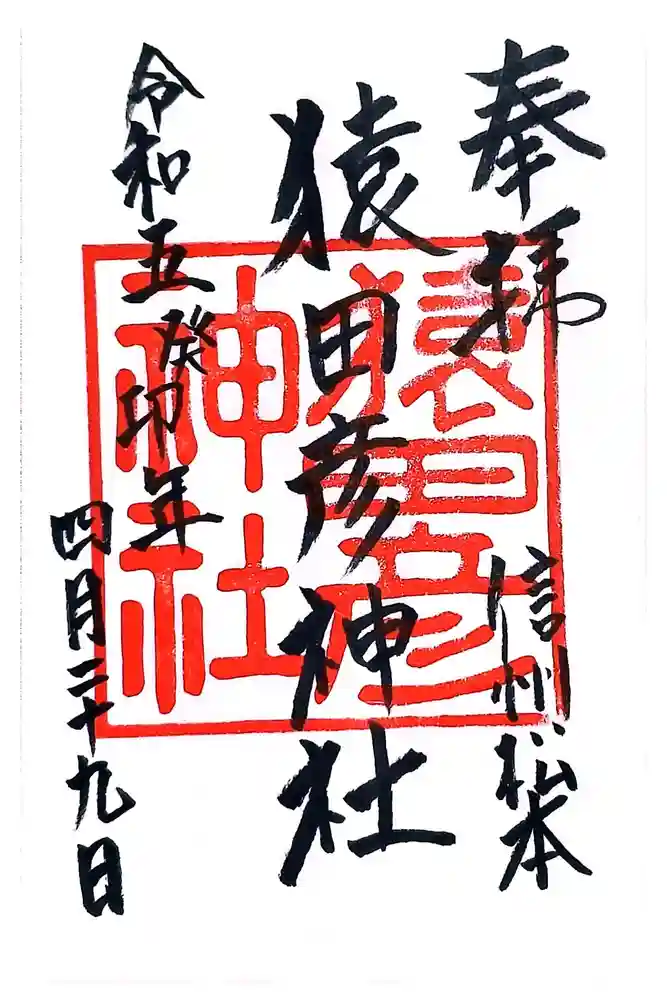 奉拜
信州松本
猿田彦神社
令和五癸卯年
四月二十九日
猿田彦
神社